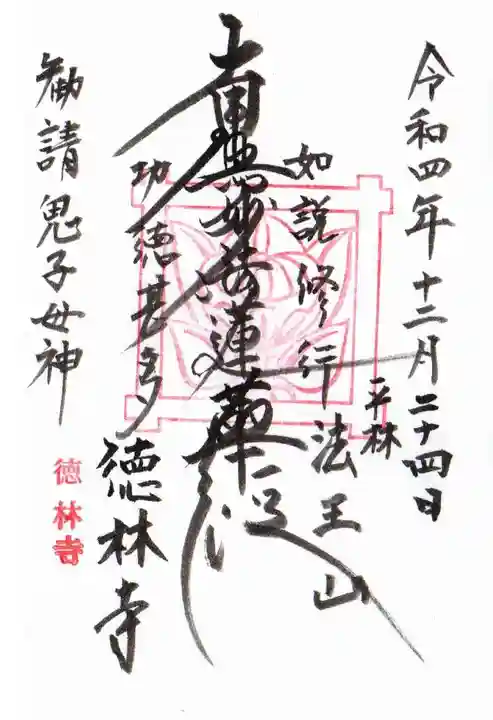 令和四年十二月二十四日
平林
如説修行 法王山
南無妙法蓮華経
功徳甚多 徳林寺
勧請鬼子母神
徳林寺